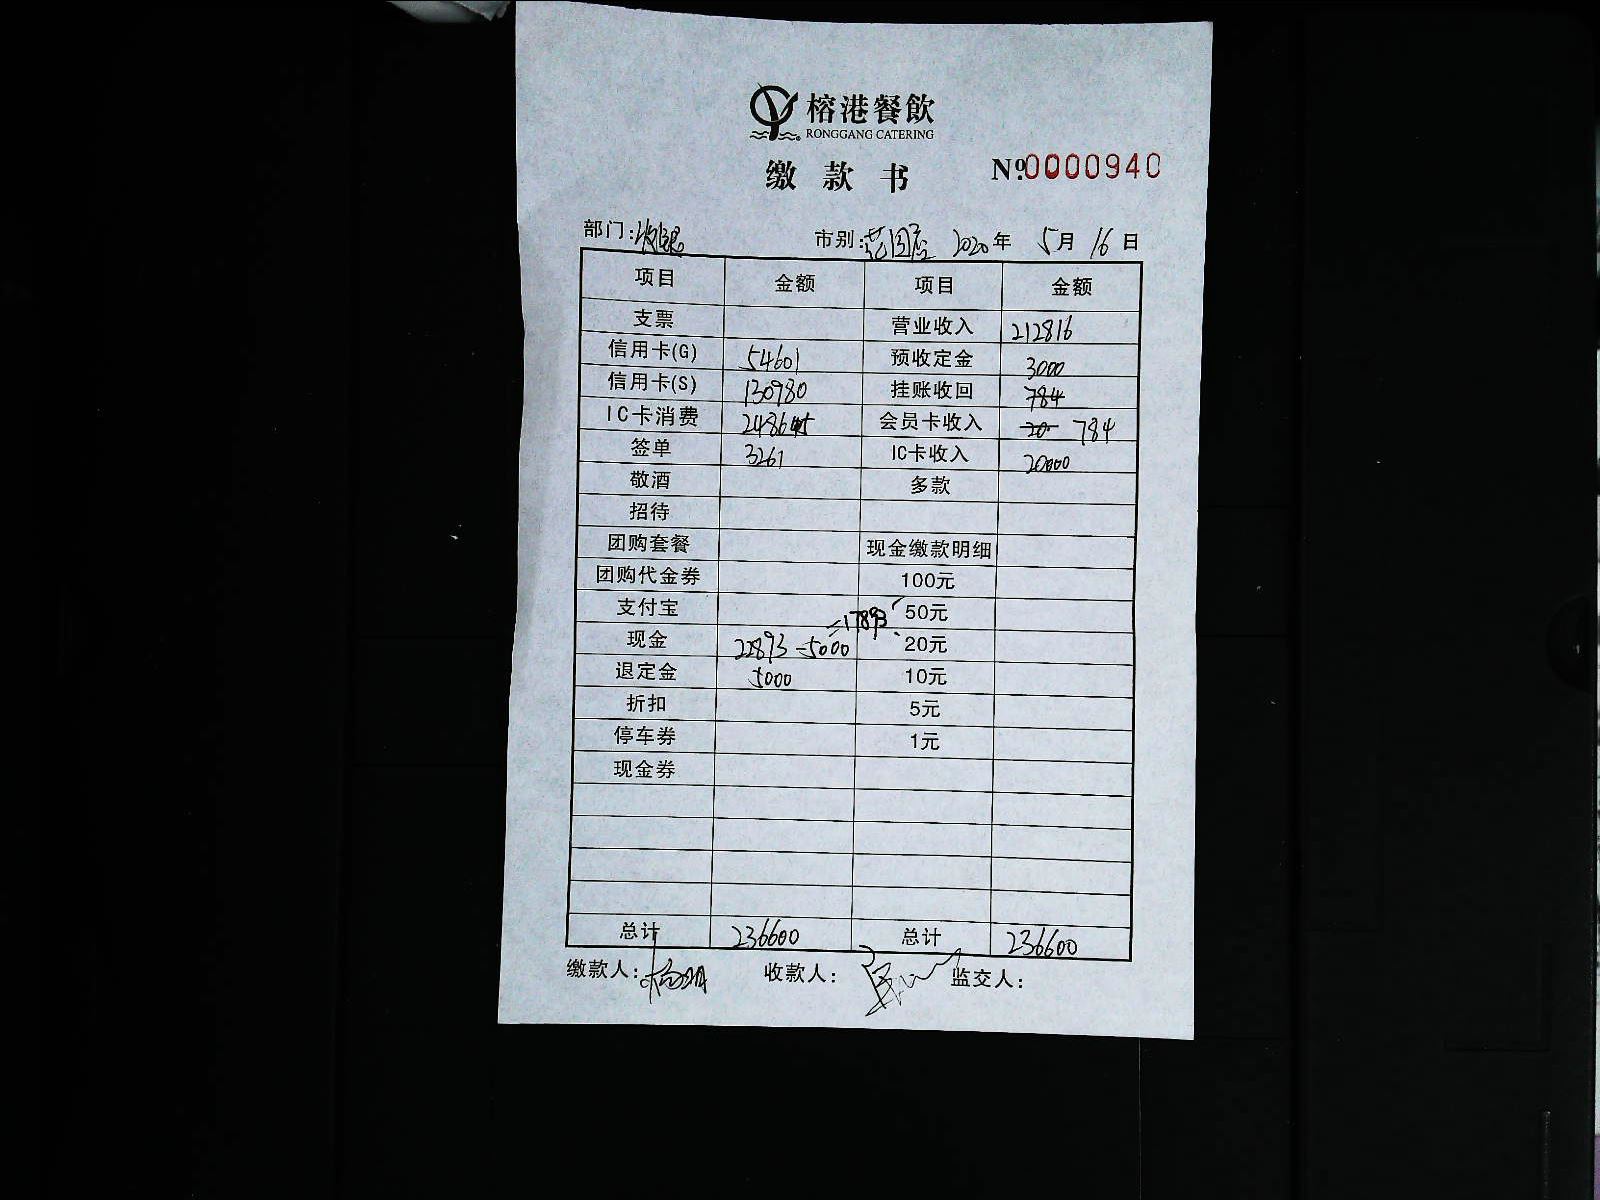 榕港餐飲
RONGGANG CATERING
缴款书 No.0000940
部门:收银 市别: 2020年 5月 16日
项目 金额 项目 金额
支票 营业收入 212816
信用卡(G) 54601 预收定金 3000
信用卡(S) 130980 挂账收回 784
IC卡消费 24865 会员卡收入 20 784
签单 3261 IC卡收入 20000
敬酒 多款
招待
团购套餐 现金缴款明细
团购代金券 100元
支付宝 50元
现金 22893-5000=17893 20元
退定金 5000 10元
折扣 5元
停车券 1元
现金券
总计 236600 总计 236600
缴款人: 收款人: 监交人: